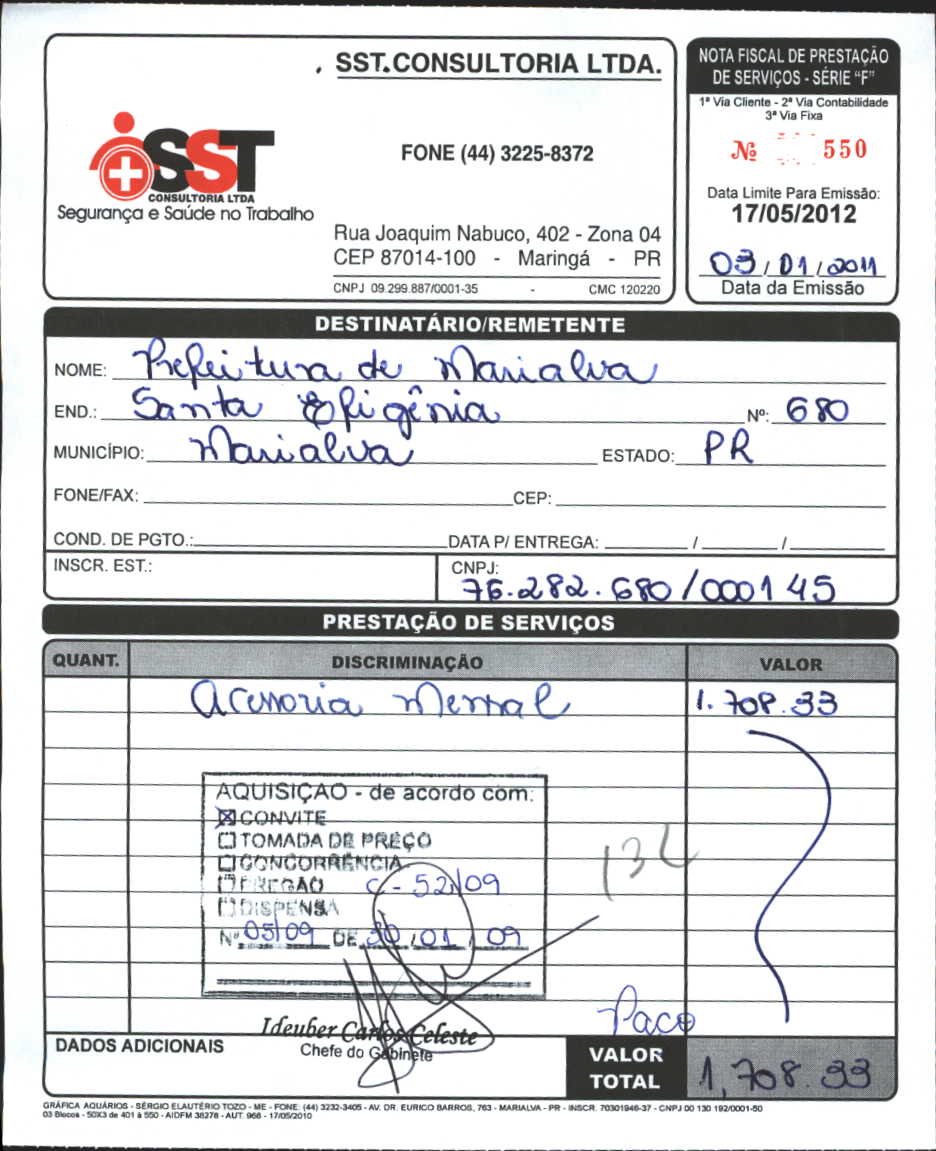 SST.CONSULTORIA LTDA.
SST
CONSULTORIA LTDA
Segurança e Saúde no Trabalho
FONE (44) 3225-8372
Rua Joaquim Nabuco, 402 - Zona 04
CEP 87014-100 - Maringá - PR
CNPJ 09.299.887/0001-35 - CMC 120220
NOTA FISCAL DE PRESTAÇÃO
DE SERVIÇOS - SÉRIE “F”
1ª Via Cliente - 2ª Via Contabilidade
3ª Via Fixa
Nº 550
Data Limite Para Emissão:
17/05/2012
03/01/2011
Data da Emissão
DESTINATÁRIO/REMETENTE
NOME: Prefeitura de Marialva
END.: Santa Efigênia Nº: 680
MUNICÍPIO: Marialva ESTADO: PR
FONE/FAX: CEP:
COND. DE PGTO.: DATA P/ ENTREGA: / /
INSCR. EST.: CNPJ: 76.282.680/0001 45
PRESTAÇÃO DE SERVIÇOS
QUANT. DISCRIMINAÇÃO VALOR
Acessoria Mensal 1.708.33
AQUISIÇÃO - de acordo com:
CONVITE
TOMADA DE PREÇO
CONCORRÊNCIA
PREGÃO C-52/09
DISPENSA
Nº 05/09 DE 30/01/09
132
Paco
Ideuber Carlos Celeste
Chefe do Gabinete
DADOS ADICIONAIS
VALOR
TOTAL 1,708.33
GRÁFICA AQUÁRIOS - SÉRGIO ELAUTÉRIO TOZO - ME - FONE: (44) 3232-3405 - AV. DR. EURICO BARROS, 763 - MARIALVA - PR - INSCR. 70301946-37 - CNPJ 00 130 192/0001-50
03 Blocos - 50X3 de 401 à 550 - AIDFM 38278 - AUT. 966 - 17/05/2010